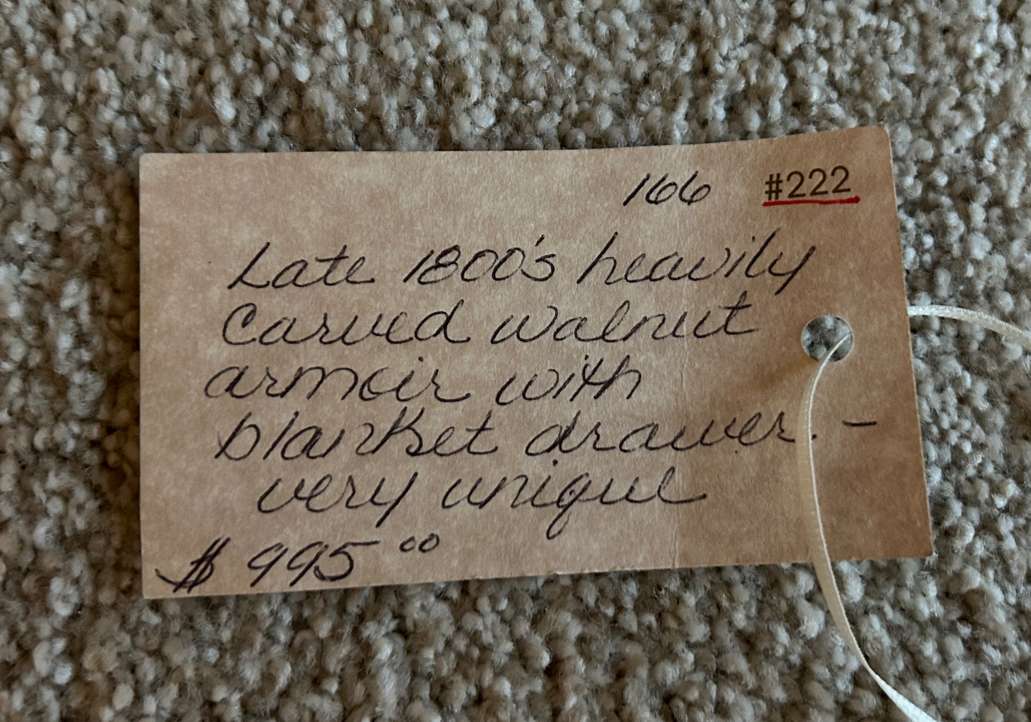 166 #222
Late 1800's heavily
carved walnut
armoir with
blanket drawer. -
very unique
$ 995 00